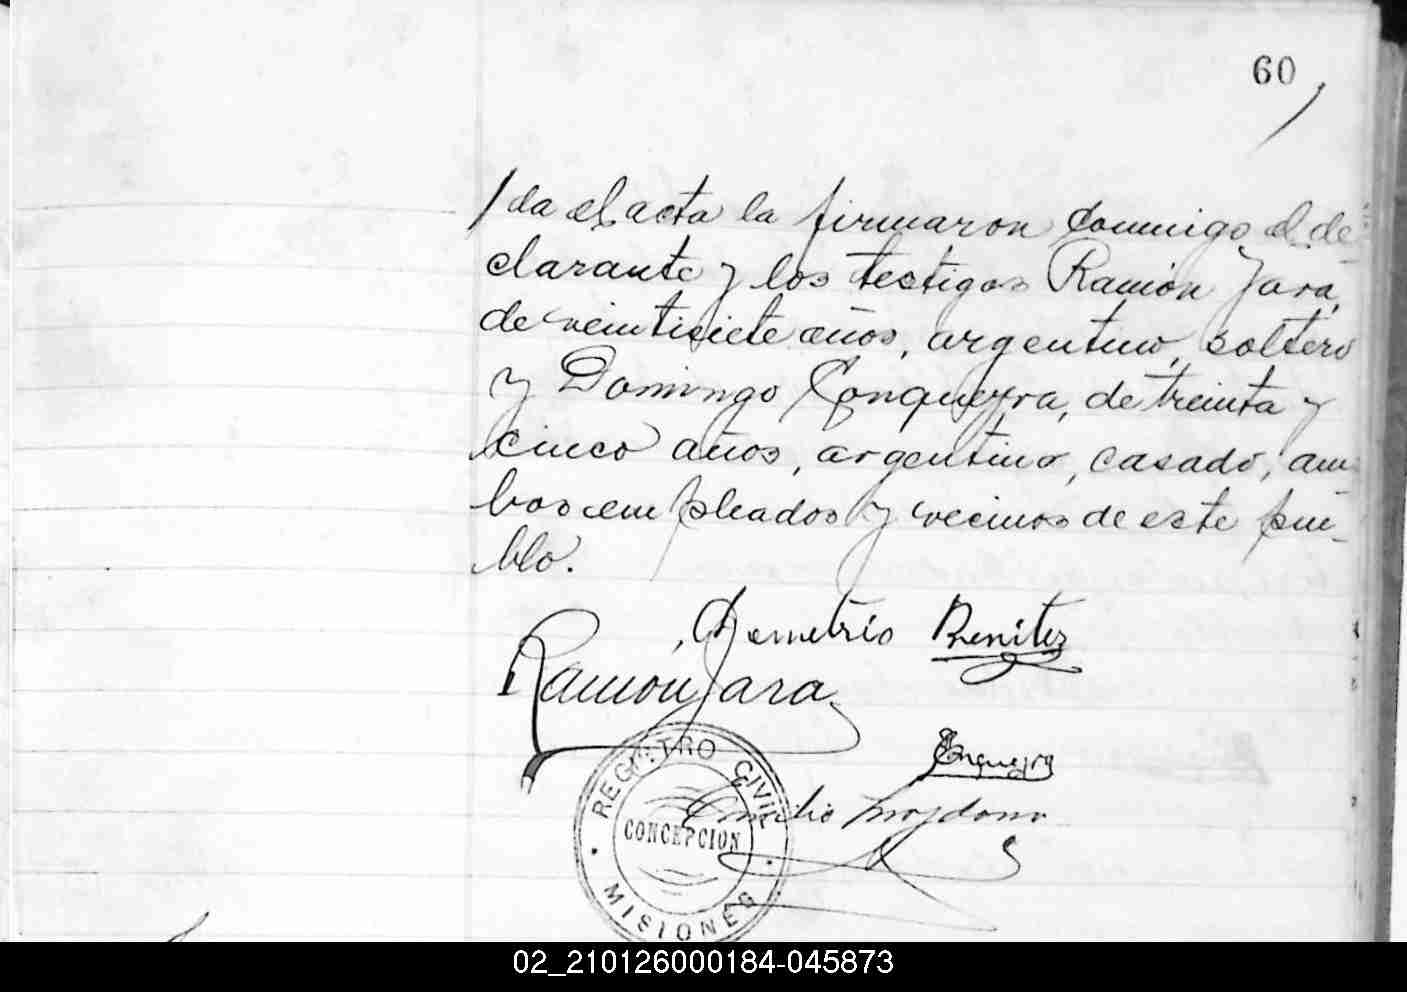 60
da el acta la firmaron conmigo el de
clarante y los testigos Ramón Jara,
de veintisiete años, argentino, soltero
y Domingo Conqueyra, de treinta y
cinco años, argentino, casado, am
bos empleados y vecinos de este pue
blo.
Demetrio Benitez
Ramón Jara
Conqueyra
REGISTRO CIVIL
CONCEPCION
MISIONES
Emilio
02_210126000184-045873